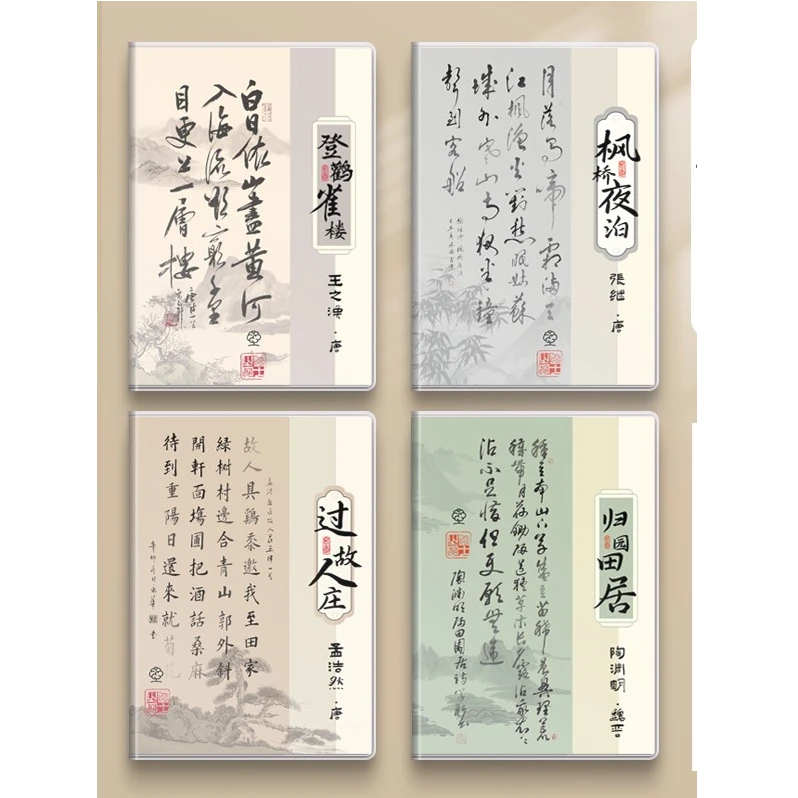 登鹳雀楼
王之涣·唐
白日依山盡黄河
入海流欲窮千里
目更上一層樓
枫桥夜泊
張继·唐
月落烏啼霜滿天
江楓漁火對愁眠姑蘇
城外寒山寺夜半鐘
聲到客船
过故人庄
孟浩然·唐
故人具鷄黍邀我至田家
綠樹村邊合青山郭外斜
開軒面場圃把酒話桑麻
待到重陽日還來就菊花
归园田居
陶渊明·魏晋
種豆南山下草盛豆苗稀晨興理荒
穢帶月荷鋤歸道狹草木長夕露沾我衣衣
沾不足惜但使願無違
陶淵明歸田園居詩